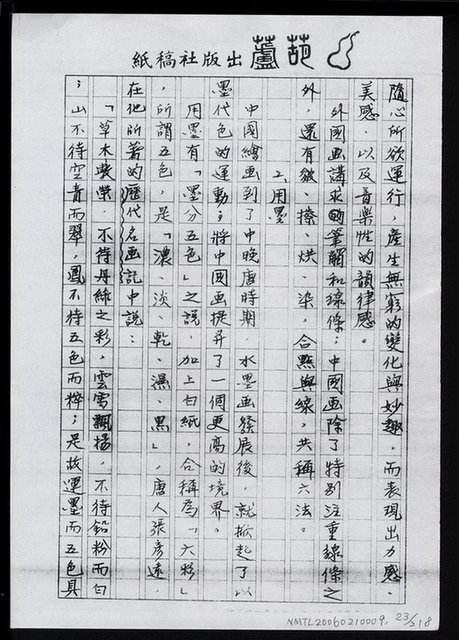 葫蘆出版社稿紙
隨心所欲運行，產生無窮的變化與妙趣，而表現出力感、
美感，以及音樂性的韻律感。
外國画講求的筆觸和線條；中國画除了特別注重線條之
外，還有皴、擦、烘、染，合點與線，共稱六法。
2.用墨
中國繪畫到了中晚唐時期，水墨画發展後，就掀起了以
墨代色的運動；將中國画提昇了一個更高的境界。
用墨有「墨分五色」之說，加上白紙，合稱為「六彩」
，所謂五色，是「濃、淡、乾、濕、黑」，唐人張彥遠，
在他所著的歷代名画記中說：
「草木敷榮，不待丹綠之彩，雲雪飄揚，不待鉛粉而白
；山不待空青而翠，鳳不待五色而粹；是故運墨而五色具
NMTL20060210009. 23/218